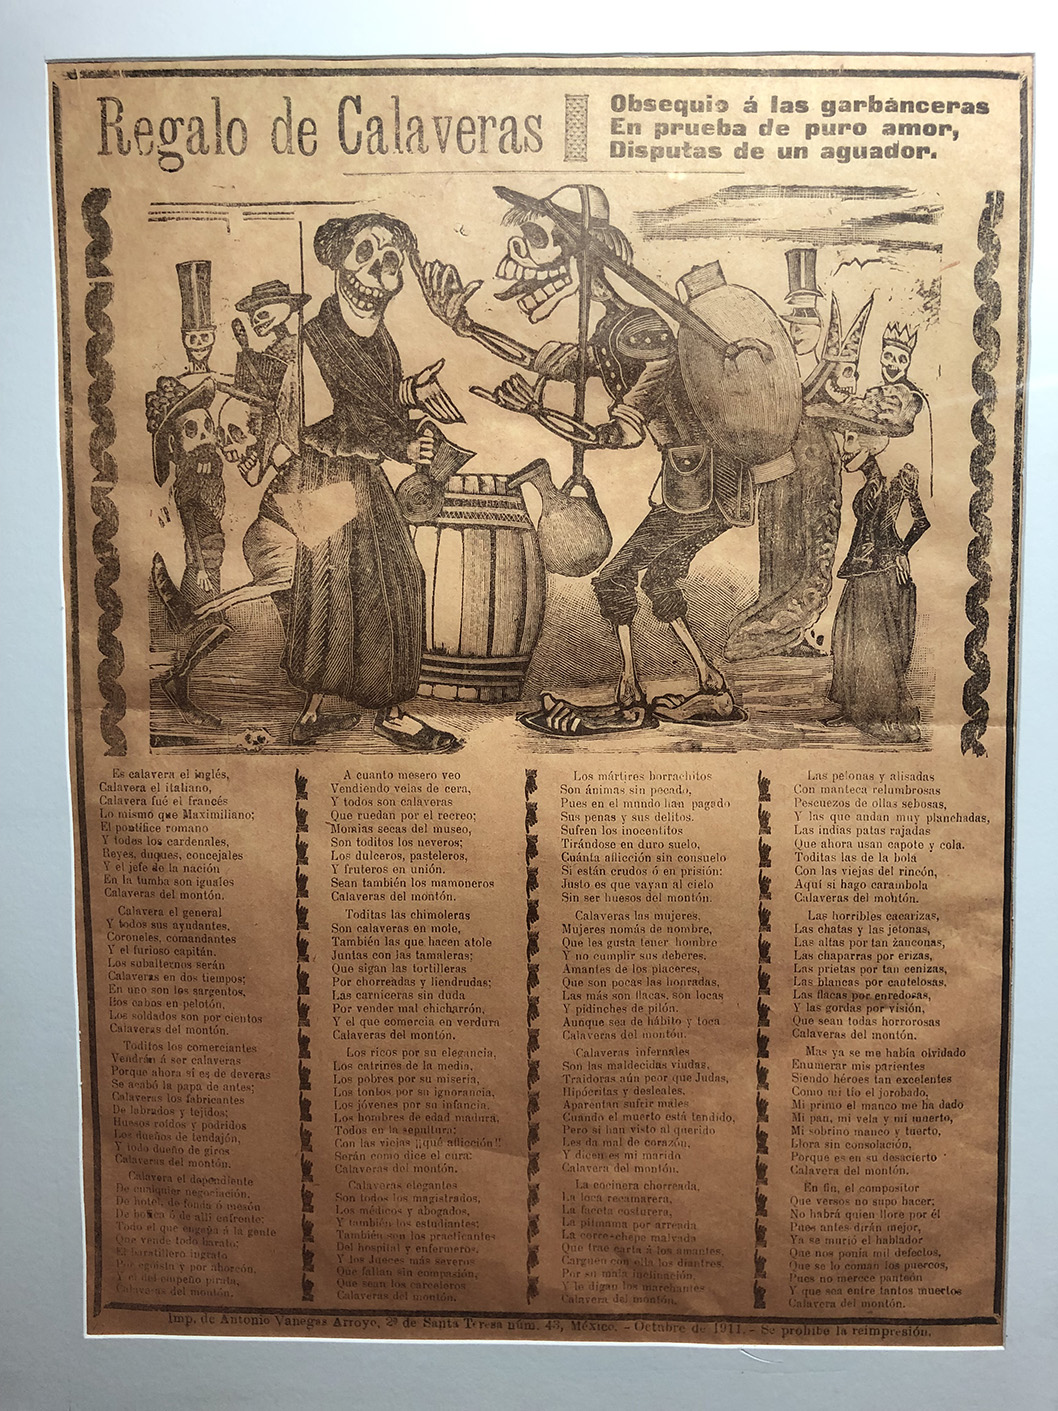 Regalo de Calaveras
Obsequio á las garbanceras
En prueba de puro amor,
Disputas de un aguador.
Es calavera el inglés,
Calavera el italiano,
Calavera fué el francés
Lo mismo que Maximiliano;
El pontífice romano
Y todos los cardenales,
Reyes, duques, concejales
Y el jefe de la nación
En la tumba son iguales
Calaveras del montón.
Calavera el general
Y todos sus ayudantes,
Coroneles, comandantes
Y el furioso capitán.
Los subalternos serán
Calaveras en dos tiempos;
En uno son los sargentos,
Los cabos en pelotón,
Los soldados son por cientos
Calaveras del montón.
Toditos los comerciantes
Vendrán á ser calaveras
Porque ahora sí es de deveras
Se acabó la papa de antes;
Calaveras los fabricantes
De labrados y tejidos;
Huesos roídos y podridos
Los dueños de tendajón,
Y todo dueño de giros
Calaveras del montón.
Calavera el dependiente
De cualquier negociación,
De hotel, de fonda ó mesón
De botica ó de allí enfrente;
Todo el que engaña á la gente
Que vende todo barato;
El baratillero ingrato
Por egoísta y por ahorcón,
Y el del empeño pirata,
Calaveras del montón.
A cuanto mesero veo
Vendiendo velas de cera,
Y todos son calaveras
Que ruedan por el recreo;
Momias secas del museo,
Son toditos los neveros;
Los dulceros, pasteleros,
Y fruteros en unión.
Sean también los mamoneros
Calaveras del montón.
Toditas las chimoleras
Son calaveras en mole,
También las que hacen atole
Juntas con las tamaleras;
Que sigan las tortilleras
Por chorreadas y liendrudas;
Las carniceras sin duda
Por vender mal chicharrón,
Y el que comercia en verdura
Calaveras del montón.
Los ricos por su elegancia,
Los catrines de la media,
Los pobres por su miseria,
Los tontos por su ignorancia,
Los jóvenes por su infancia,
Los hombres de edad madura,
Todos en la sepultura;
Con las viejas ¡¡qué aflicción!!
Serán como dice el cura:
Calaveras del montón.
Calaveras elegantes
Son todos los magistrados,
Los médicos y abogados,
Y también los estudiantes;
También son los practicantes
Del hospital y enfermeros,
Y los jueces más severos
Que fallan sin compasión,
Que sean los carceleros
Calaveras del montón.
Los mártires borrachitos
Son ánimas sin pecado,
Pues en el mundo han pagado
Sus penas y sus delitos.
Sufren los inocentitos
Tirándose en duro suelo,
Cuánta aflicción sin consuelo
Si están crudos ó en prisión:
Justo es que vayan al cielo
Sin ser huesos del montón.
Calaveras las mujeres,
Mujeres nomás de nombre,
Que les gusta tener hombre
Y no cumplir sus deberes.
Amantes de los placeres,
Que son pocas las honradas,
Las más son flacas, son locas
Y pidinches de pilón,
Aunque sea de hábito y toca
Calaveras del montón.
Calaveras infernales
Son las maldecidas viudas,
Traidoras aún peor que Judas,
Hipócritas y desleales.
Aparentan sufrir males
Cuando el muerto está tendido,
Pero si han visto al querido
Les da mal de corazón,
Y dicen es mi marido
Calavera del montón.
La cocinera chorreada,
La loca recamarera,
La faceta costurera,
La pilmama por arreada
La corre-chepe malvada
Que trae carta á los amantes,
Carguen con ella los diantres,
Por su mala inclinación,
Y le digan los marchantes
Calavera del montón.
Las pelonas y alisadas
Con manteca relumbrosas
Pescuezos de ollas sebosas,
Y las que andan muy planchadas,
Las indias patas rajadas
Que ahora usan capote y cola.
Toditas las de la bola
Con las viejas del rincón,
Aquí sí hago carambola
Calaveras del montón.
Las horribles cacarizas,
Las chatas y las jetonas,
Las altas por tan zanconas,
Las chaparras por erizas,
Las prietas por tan cenizas,
Las blancas por cautelosas,
Las flacas por enredosas,
Y las gordas por visión,
Que sean todas horrorosas
Calaveras del montón.
Mas ya se me había olvidado
Enumerar mis parientes
Siendo héroes tan excelentes
Como mi tío el jorobado,
Mi primo el manco me ha dado
Mi pan, mi vela y mi muerto,
Mi sobrino manco y tuerto,
Llora sin consolación,
Porque es en su desacierto
Calavera del montón.
En fin, el compositor
Que versos no supo hacer;
No habrá quien llore por él
Pues antes dirán mejor,
Ya se murió el hablador
Que nos ponía mil defectos,
Que se lo coman los puercos,
Pues no merece panteón
Y que sea entre tantos muertos
Calavera del montón.
Imp. de Antonio Vanegas Arroyo, 2ª de Santa Teresa núm. 43, México. - Octubre de 1911. - Se prohibe la reimpresión.